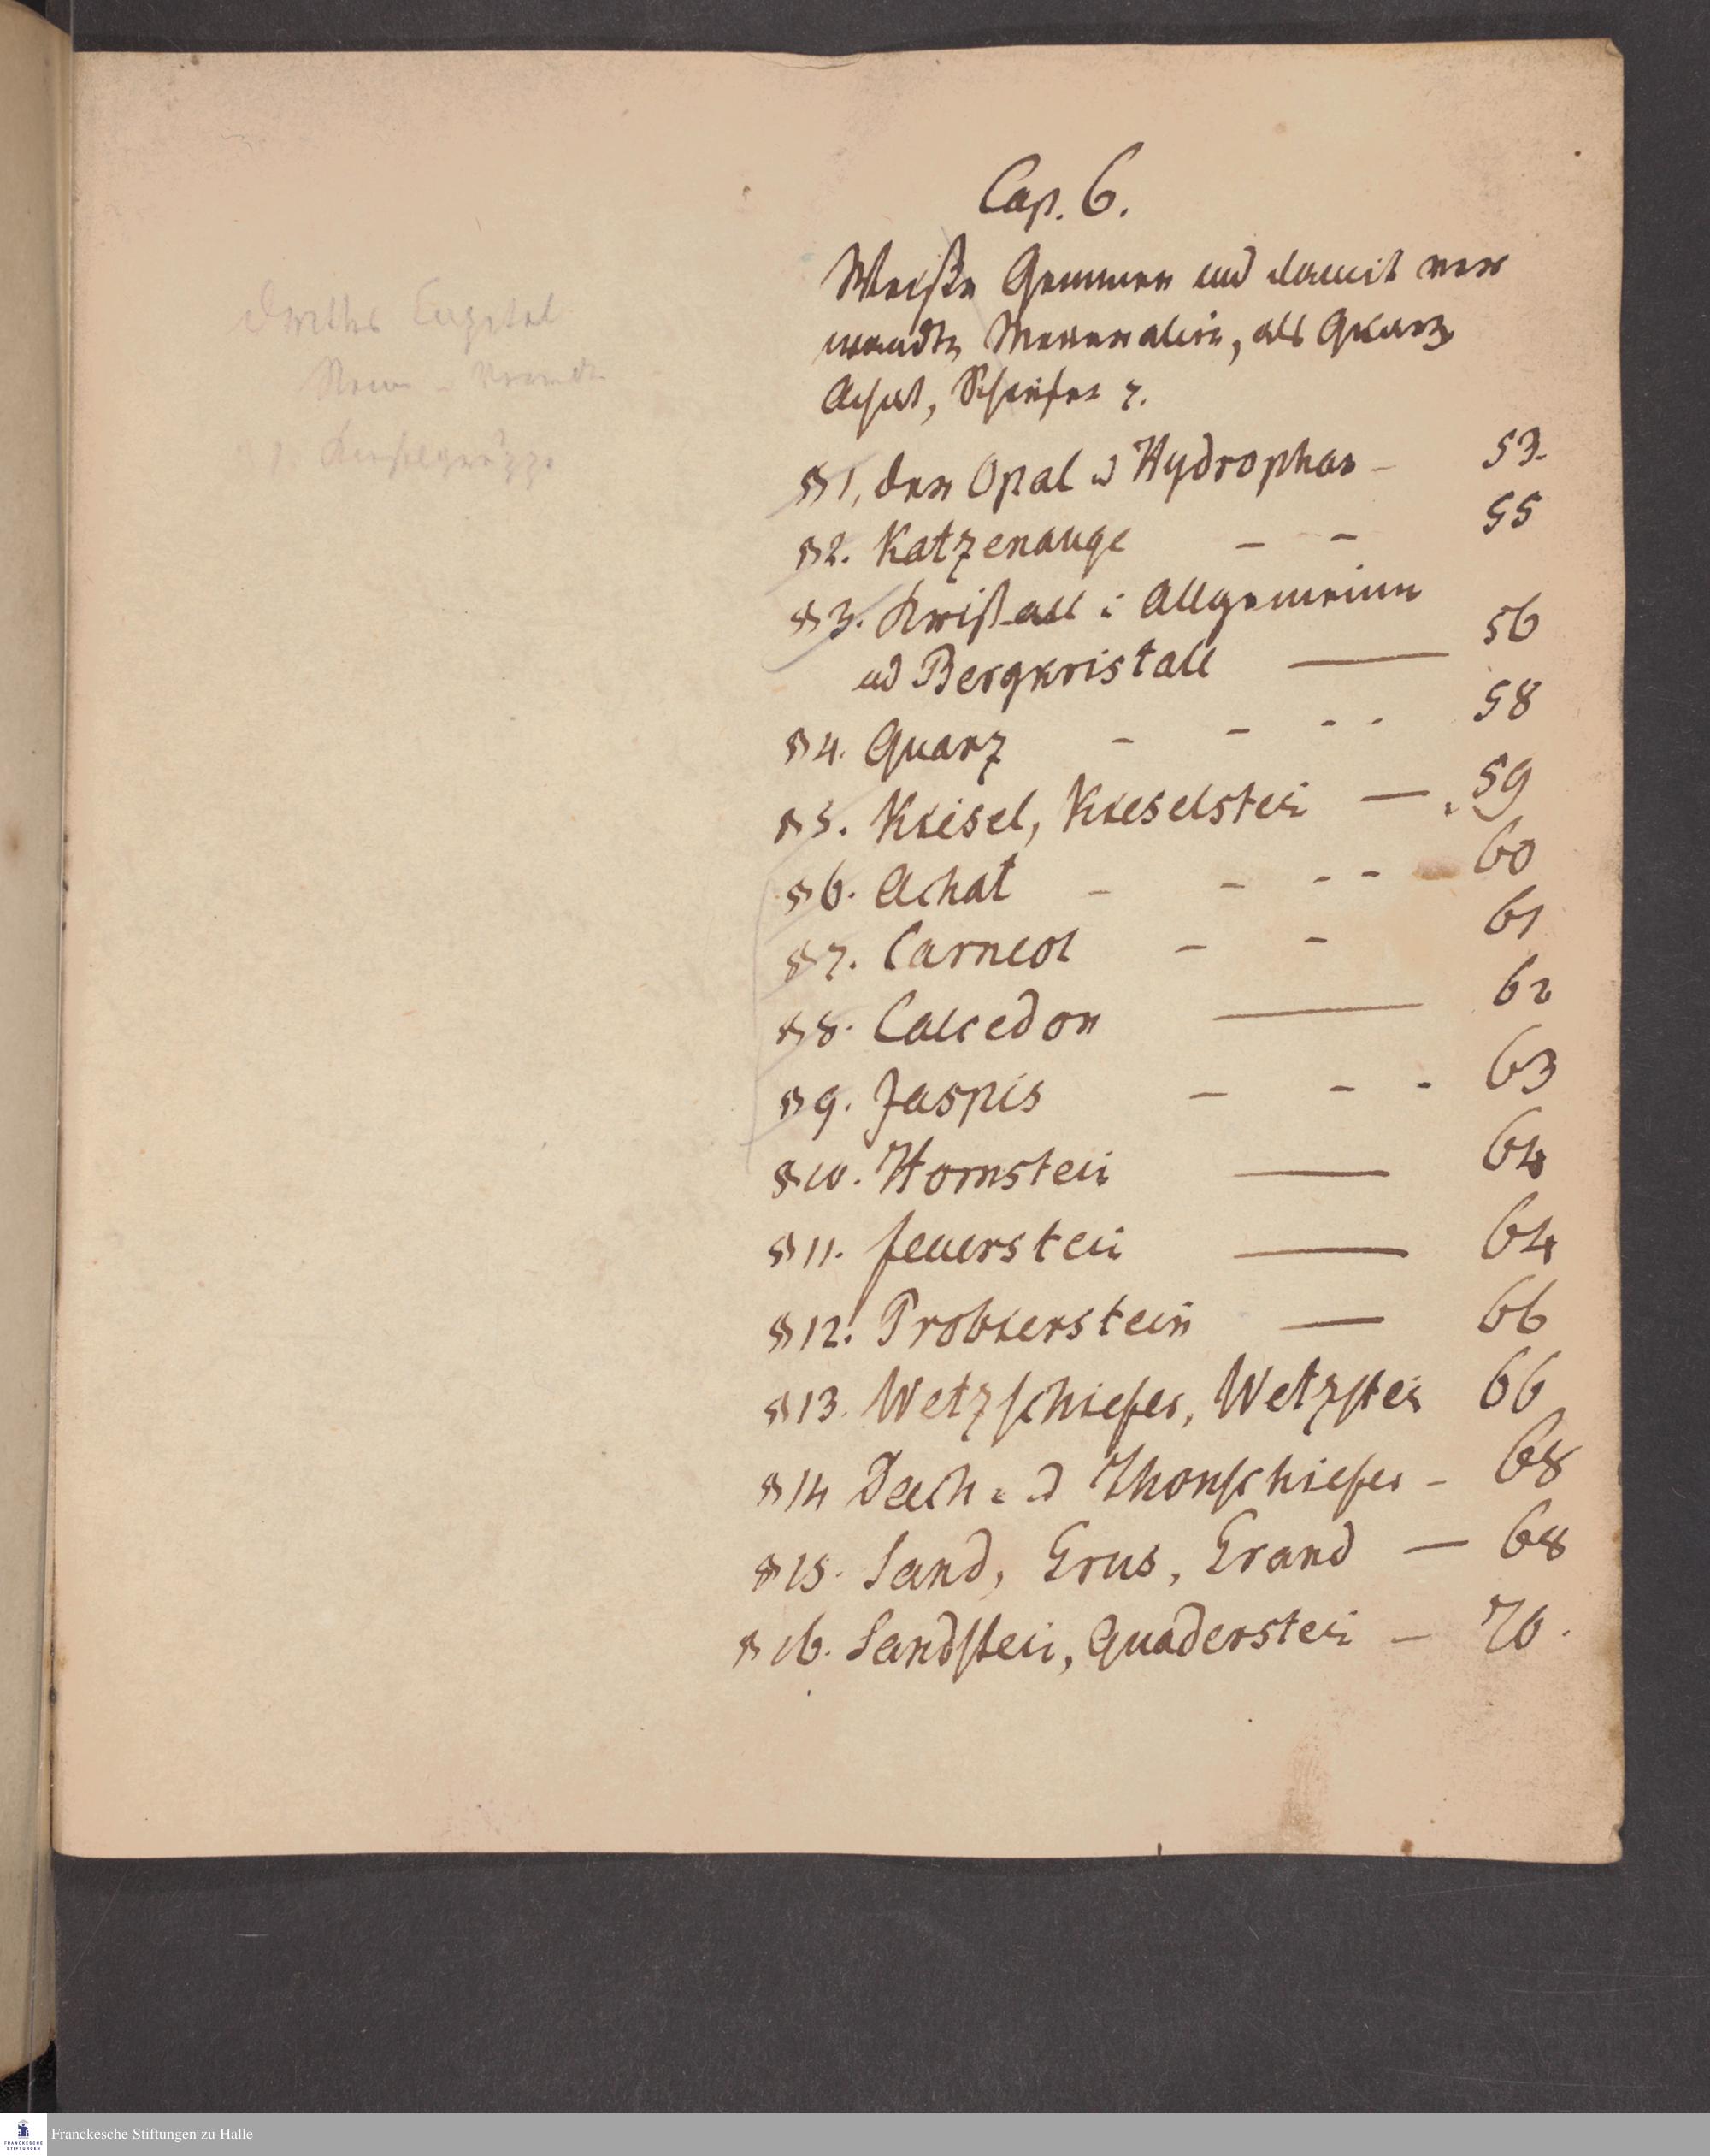 Cap. 6.
Weiße Gemmen und damit ver
wandte Mineralien, als Quarz
Achat, Schiefer ꝛ.
§ 1, der Opal u Hydrophan - 53.
§ 2. Katzenauge - - 55
§ 3. Kristall i Allgemeinen
ud Bergkristall — 56
§ 4. Quarz - - - - 58
§ 5. Kiesel, Kieselstein — 59
§ 6. Achat - - - - 60
§ 7. Carneol - - 61
§ 8. Calcedon — 62
§ 9. Jaspis - - - 63
§ 10. Hornstein — 64
§ 11. feuerstein — 64
§ 12. Probierstein — 66
§ 13. Wetzschiefer, Wetzstein 66
§ 14 Dach- u Thonschiefer - 68
§ 15. Sand, Grus, Grand — 68
§ 16. Sandstein, Quaderstein - 70.
Drittes Capitel
Franckesche Stiftungen zu Halle
FRANCKESCHE
STIFTUNGEN